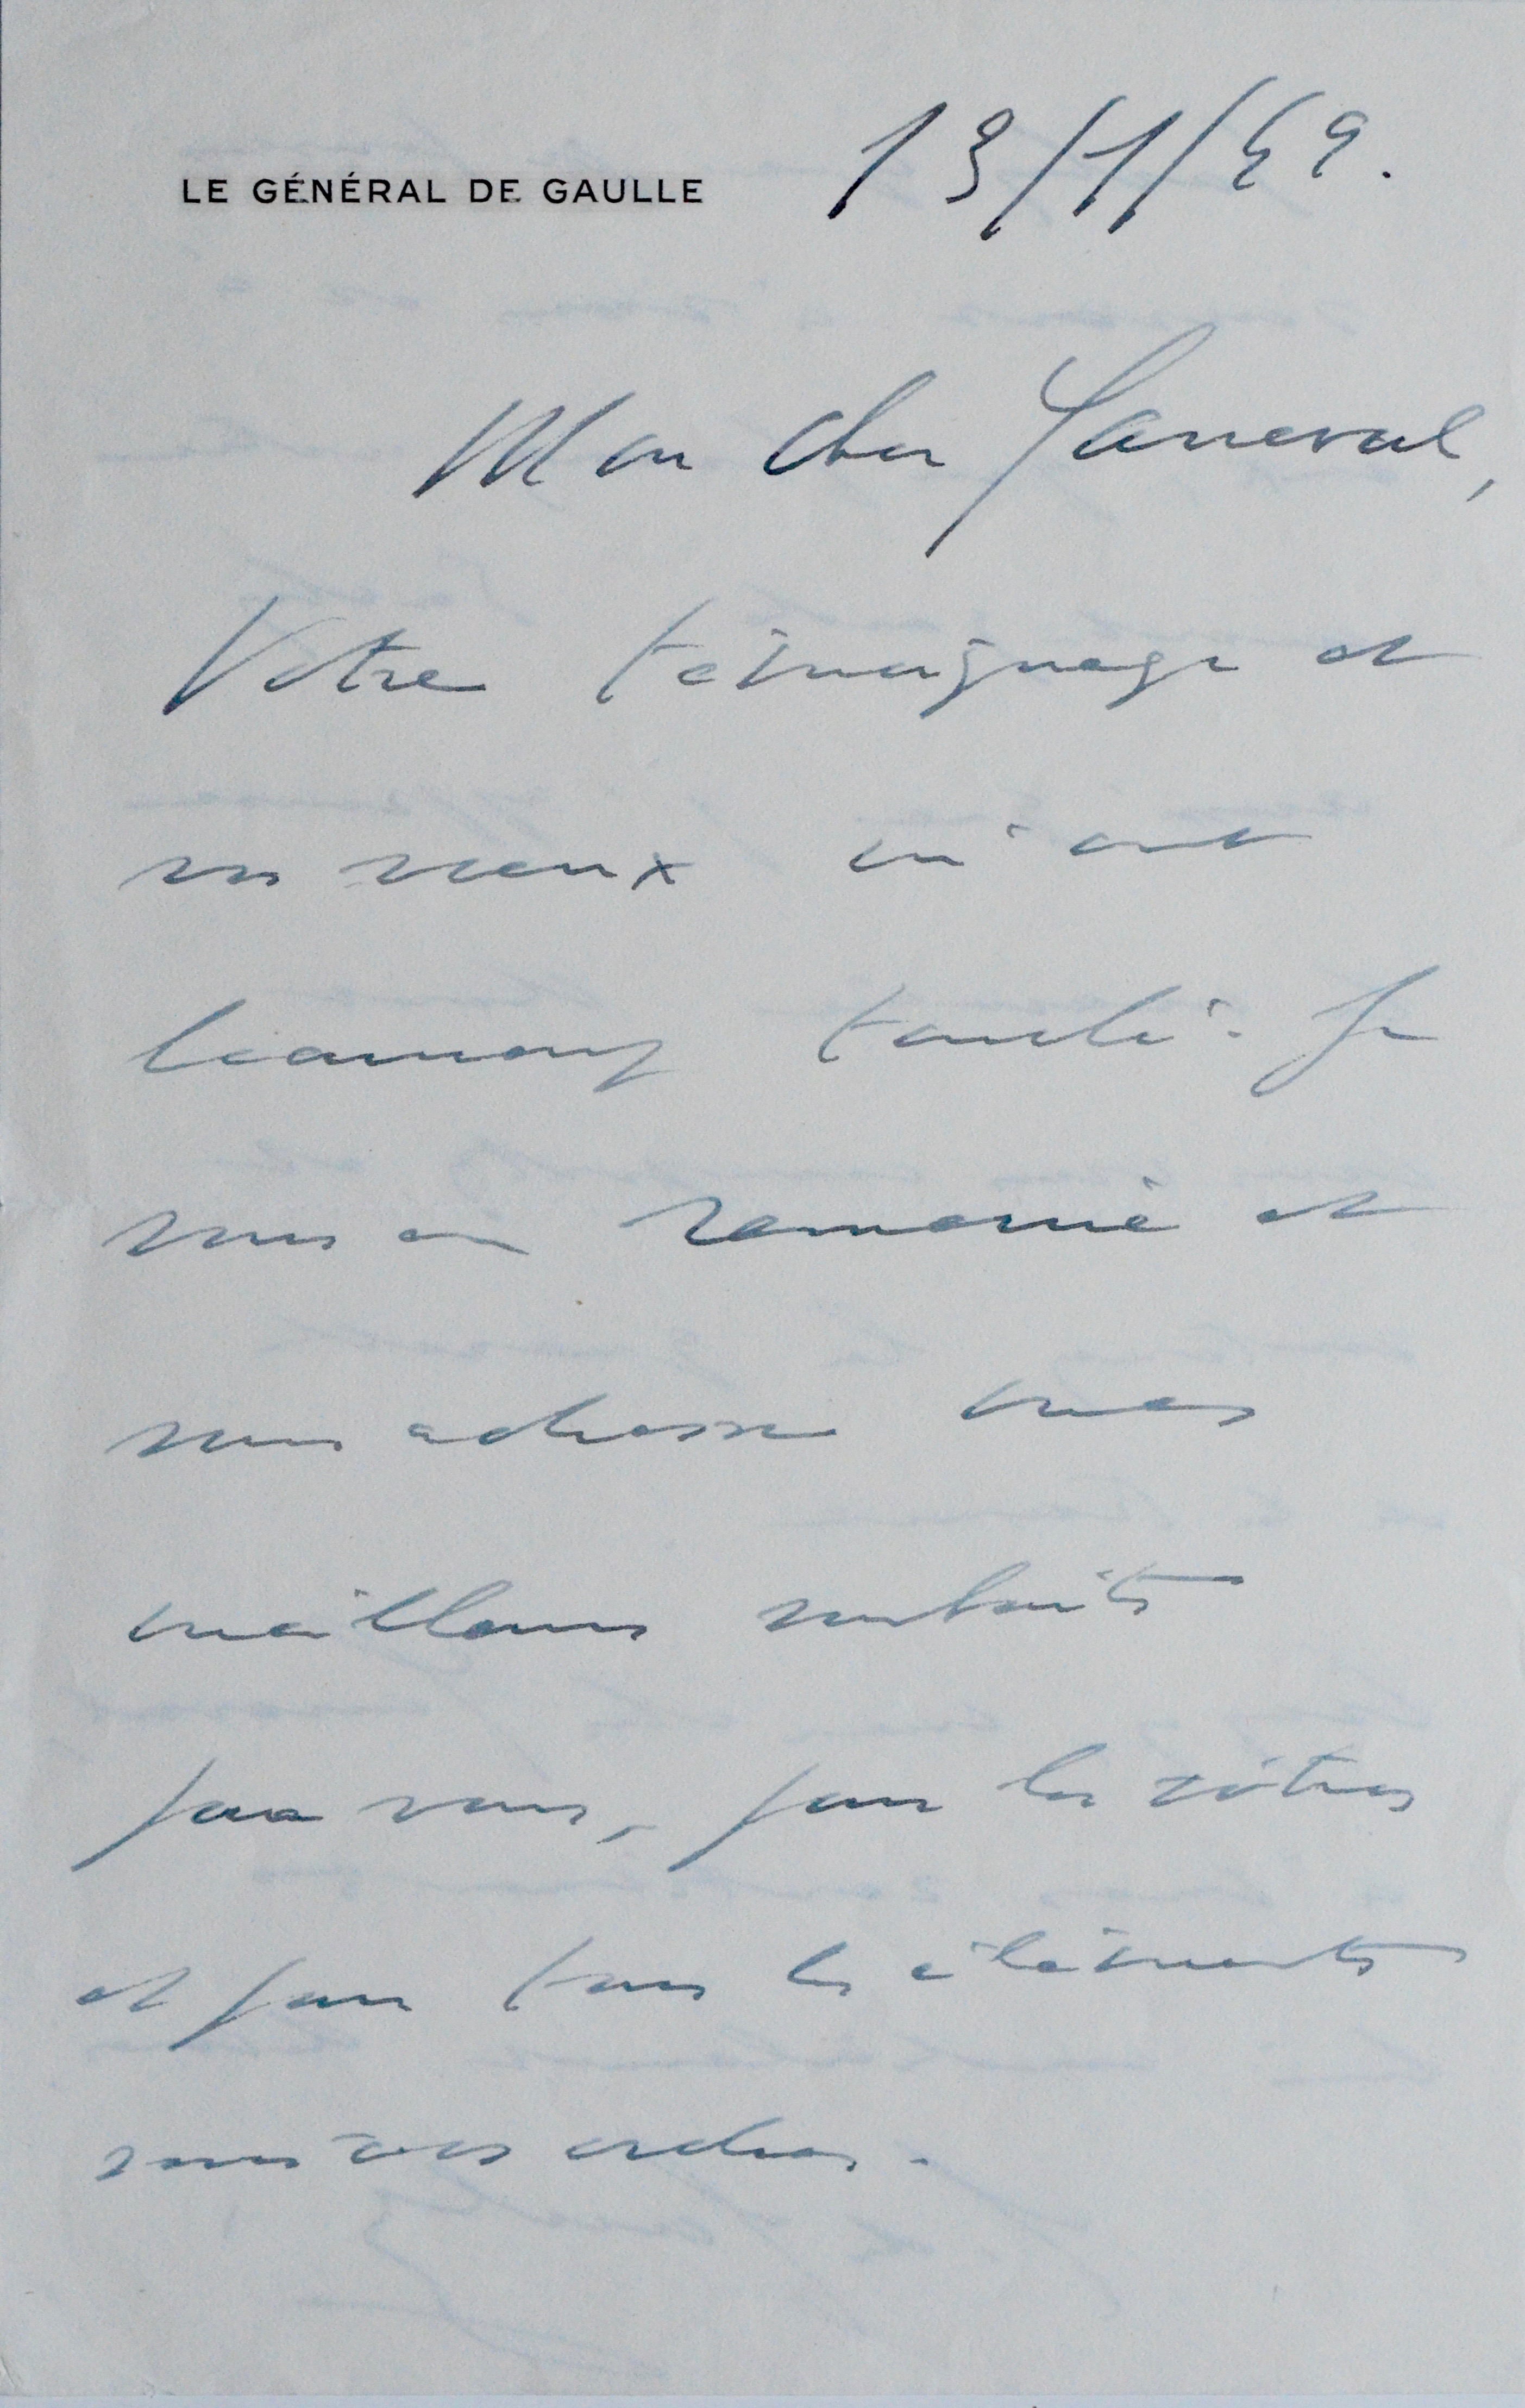 LE GÉNÉRAL DE GAULLE
13/1/49.
Mon cher Janneval,
Votre témoignage et
vos vœux m'ont
beaucoup touché. Je
vous en remercie et
vous adresse mes
meilleurs souhaits
pour vous, pour les vôtres
et pour tous les éléments
sous vos ordres.